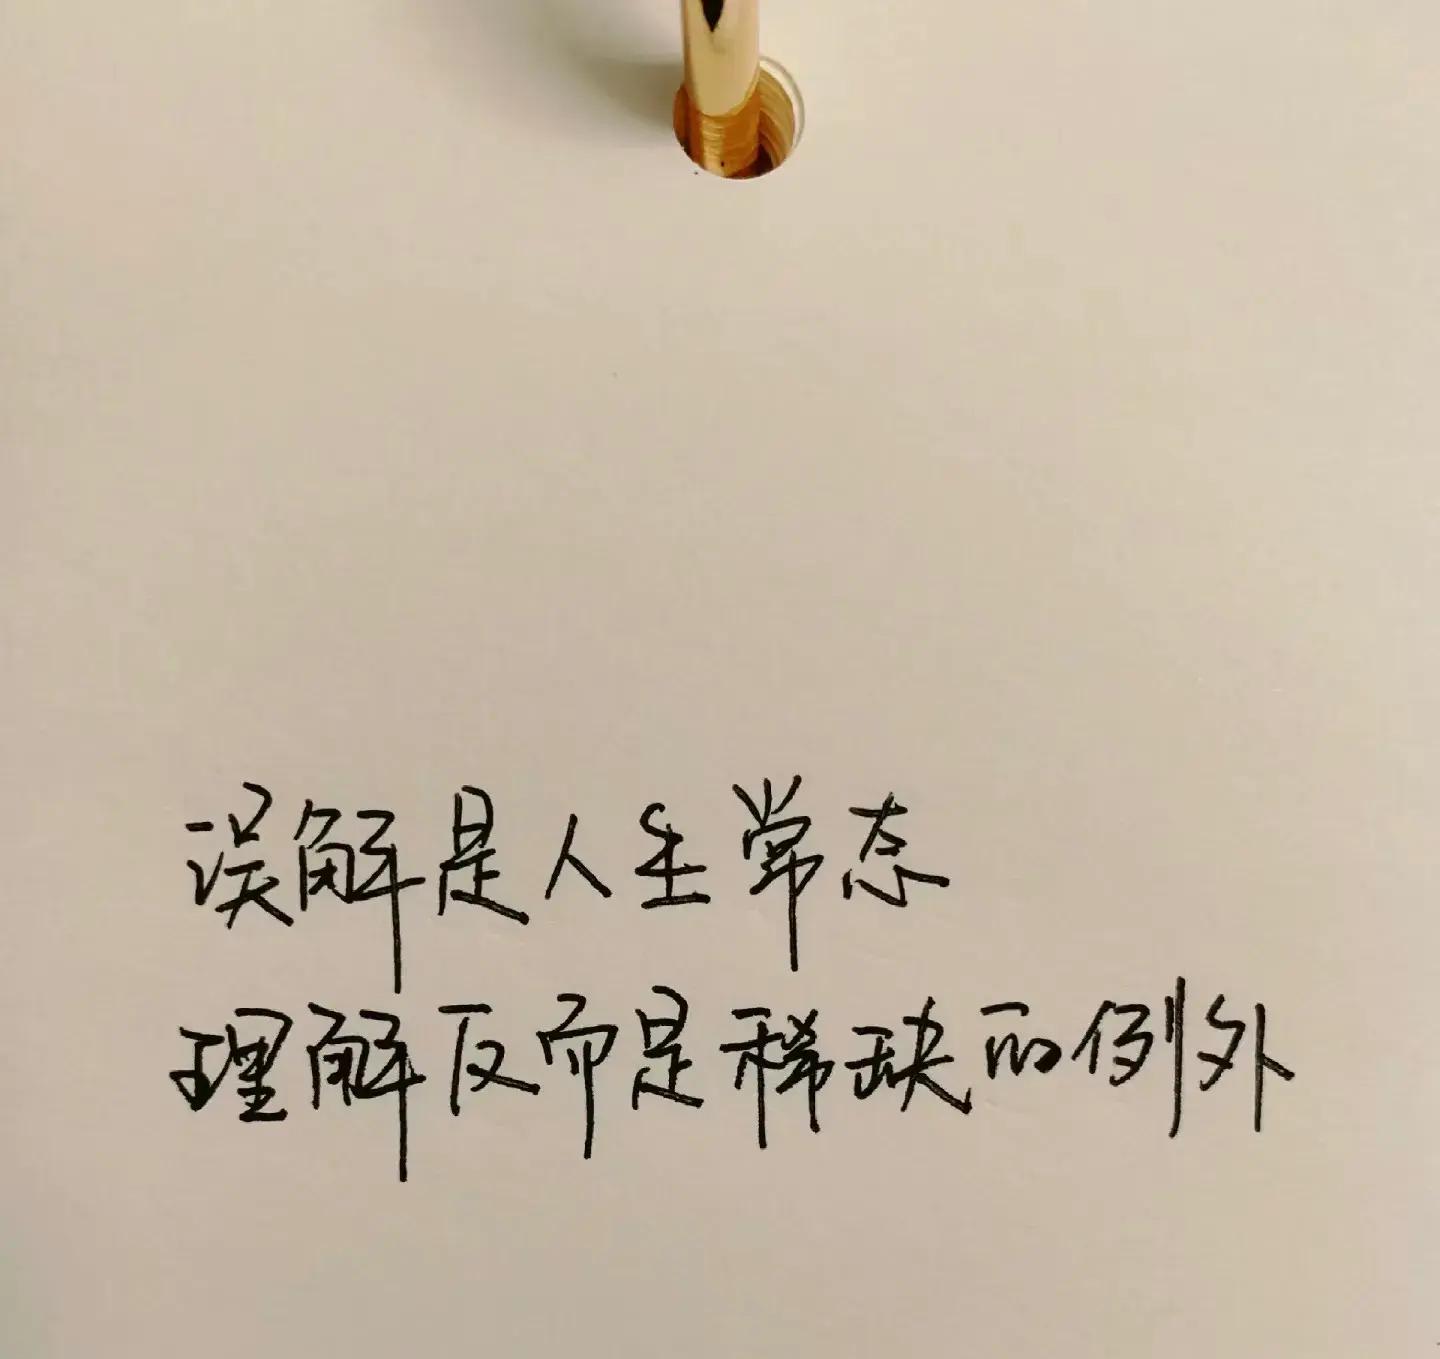 误解是人生常态
理解反而是稀缺的例外